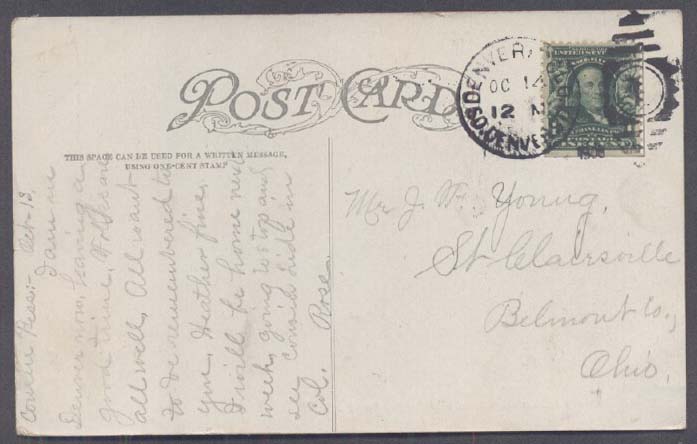 POST CARD
THIS SPACE CAN BE USED FOR A WRITTEN MESSAGE,
USING ONE-CENT STAMP
DENVER,
OC 14
12 M
SO. DENVER ST
1908
FRANKLIN
Oct-13.
I am in
Denver now, having a
good time. Folks are
all well. All want
to be remembered to
you. Weather fine.
I will be home next
week, going to stop and
see cousin in
Col. Rose.
Mr J. W. Young,
St Clairsville
Belmont Co.,
Ohio.